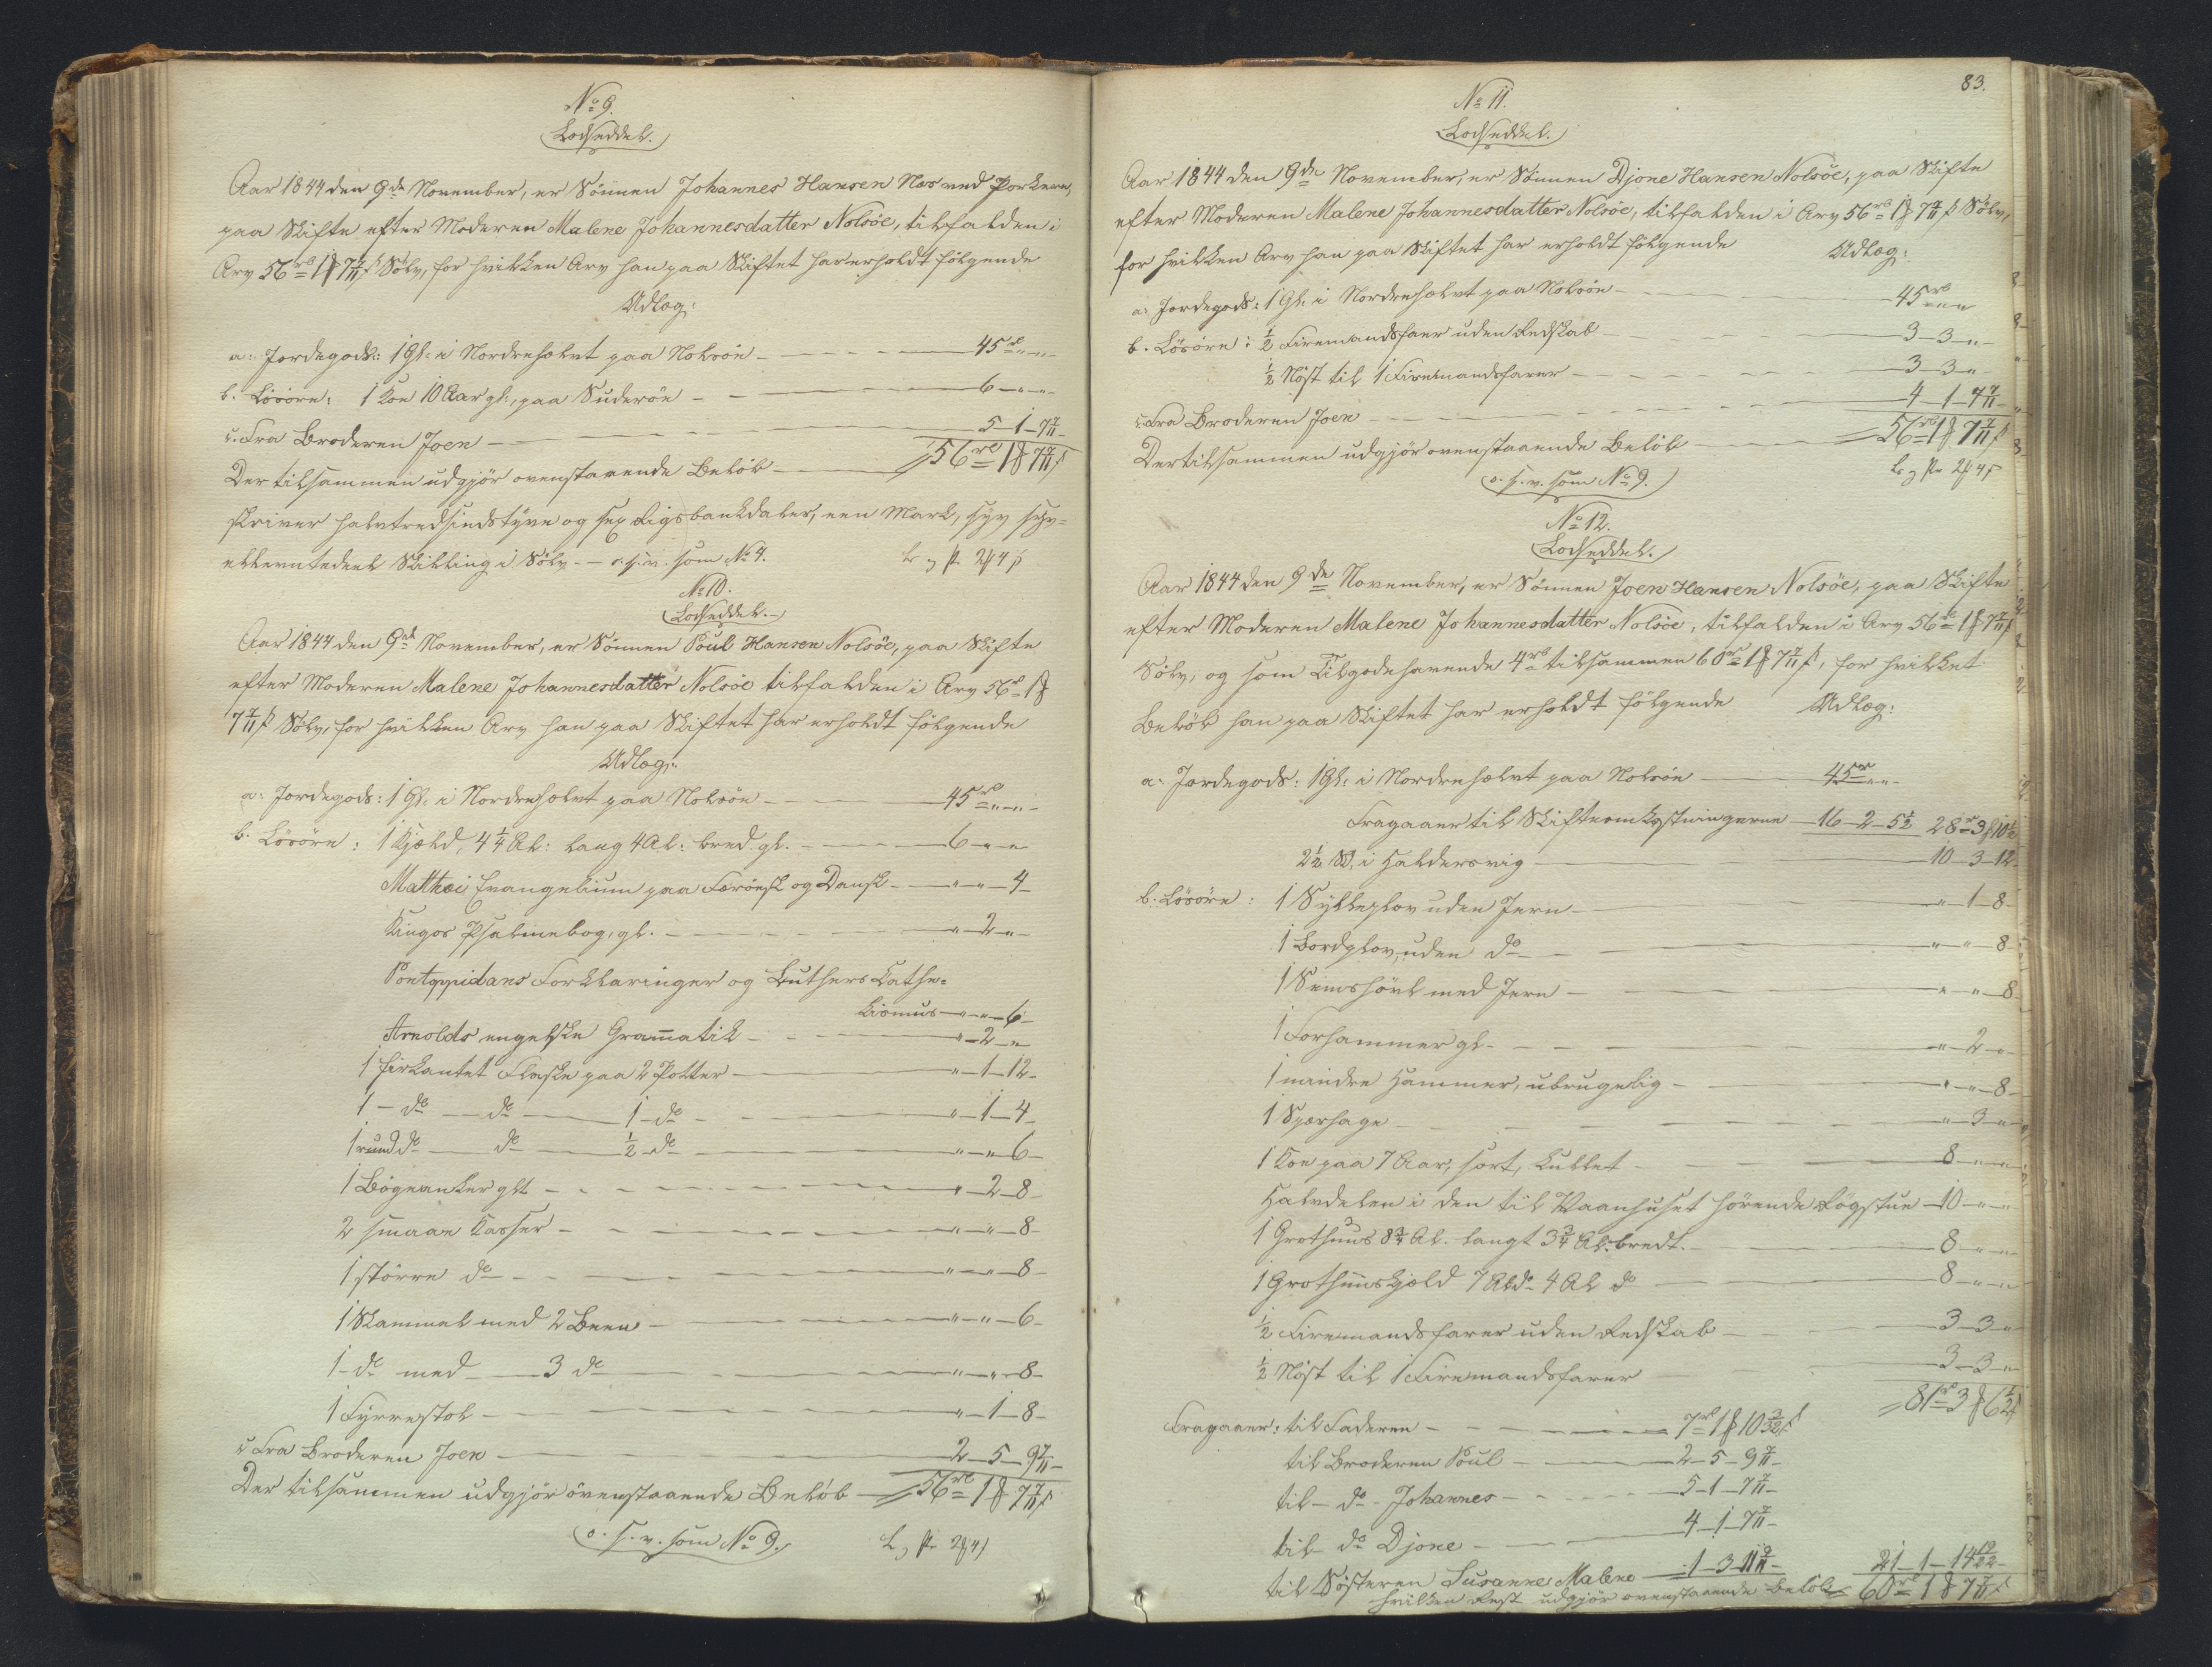 No 9.
Lodseddel.
Aar 1844 den 9de November, er Sönnen Johannes Hansen Næs ved Porkere,
paa Skifte efter Moderen Malene Johannesdatter Nolsöe, tilfalden i
Arv 56rb 1 ℔ 7 7/11 ß Sölv, for hvilken Arv han paa Skiftet har erholdt fölgende
Udlæg:
a. Jordegods: 1 Gl. i Nordrehælvt paa Nolsöe - 45rb " "
b. Lösöre: 1 Koe 10 Aar gl., paa Suderöe - 6 - " - "
c. Fra Broderen Joen - 5 - 1 - 7 7/11
Der tilsammen udgjör ovenstaaende Belöb - 56rb 1 ℔ 7 7/11 ß
skriver halvtredsindstyve og sex Rigsbankdaler, een Mark, syv syv-
ellevtedeel Skilling i Sölv. - o. s. v. som No 4.
No 10.
Lodseddel.
Aar 1844 den 9de November, er Sönnen Poul Hansen Nolsöe, paa Skifte
efter Moderen Malene Johannesdatter Nolsöe tilfalden i Arv 56rb 1 ℔
7 7/11 ß Sölv, for hvilken Arv han paa Skiftet har erholdt fölgende
Udlæg:
a. Jordegods: 1 Gl. i Nordrehælvt paa Nolsöe - 45rb " - "
b. Lösöre: 1 Kjæld, 4 1/4 Al: lang 4 Al: bred. gl. - 6 - " - "
Matthæi Evangelium paa Færöesk og Dansk - " - " - 4
Kingos Psalmebog, gl. - " - 2 - "
Pontoppidans Forklaringer og Luthers Cathe-
kismus - " - " - 6
Arnolds engelske Gram̄atik - " - 2 - "
1 firkantet Flaske paa 2 Potter - " - 1 - 12
1 - do - do - 1 - do - " - 1 - 4
1 rund do - do - 1/2 - do - " - " - 6
1 Bögeanker glt - " - 2 - 8
2 smaae Kasser - " - " - 8
1 större do - " - " - 8
1 Skammel med 2 Been - " - " - 6
1 - do med - 3 do - " - " - 8
1 Fyrrestol - " - 1 - 8
c. Fra Broderen Joen - 2 - 5 - 9 7/11
Der tilsammen udgjör ovenstaaende Belöb - 56rb 1 ℔ 7 7/11 ß
o. s. v. som No 9.
83.
No 11.
Lodseddel.
Aar 1844 den 9de November, er Sönnen Djone Hansen Nolsöe, paa Skifte
efter Moderen Malene Johannesdatter Nolsöe, tilfalden i Arv 56rb 1 ℔ 7 7/11 ß Sölv,
for hvilken Arv han paa Skiftet har erholdt fölgende Udlæg:
a. Jordegods: 1 Gl. i Nordrehælvt paa Nolsöe - 45rb " "
b. Lösöre: 1/2 Firemandsfaer uden Redskab - 3 - 3 - "
1/2 Nöst til 1 Firemandsfarer - 3 - 3 - "
c. Fra Broderen Joen - 4 - 1 - 7 7/11
Der tilsammen udgjör ovenstaaende Belöb - 56rb 1 ℔ 7 7/11 ß
o. s. v. som No 9.
No 12.
Lodseddel.
Aar 1844 den 9de November, er Sönnen Joen Hansen Nolsöe, paa Skifte
efter Moderen Malene Johannesdatter Nolsöe, tilfalden i Arv 56rb 1 ℔ 7 7/11 ß
Sölv, og som Tilgodehavende 4rb tilsammen 60rb 1 ℔ 7 7/11 ß, for hvilket
Belöb han paa Skiftet har erholdt fölgende Udlæg:
a. Jordegods: 1 Gl. i Nordrehælvt paa Nolsöe - 45rb " "
Fragaaer til Skifteomkostningerne - 16 - 2 - 5 1/2 28rb 3 ℔ 10 1/2
2 1/2 Sk. i Haldersvig - 10 - 3 - 12
b. Lösöre: 1 Sylleplov uden Jern - " - 1 - 8
1 Bordplov, uden do - " - " - 8
1 Simshövl med Jern - " - " - 8
1 Forhammer gl. - " - 2 - "
1 mindre Hammer, ubrugelig - " - " - 8
1 Sperhage - " - 3 - "
1 Koe paa 7 Aar, sort, kullet - 8 - " - "
Halvdelen i den til Vaanhuset hörende Rögstue - 10 - " - "
1 Grothuus 8 3/4 Al. langt 3 3/4 Al. bredt. - 8 - " - "
1 Grothuuskjæld 7 Al do 4 Al do - 8 - " - "
1/2 Firemandsfarer uden Redskab - 3 - 3 - "
1/2 Nöst til 1 Firemandsfarer - 3 - 3 - "
81rb 3 ℔ 6 1/2 ß
Fragaaer: til Faderen - 7rb 1 ℔ 10 3/22 ß
til Broderen Poul - 2 - 5 - 9 7/11
til - do - Johannes - 5 - 1 - 7 7/11
til - do Djone - 4 - 1 - 7 7/11
til Sösteren Susanne Malene - 1 - 3 - 11 9/11 21 - 1 - 14 19/22
hvilken Rest udgjör ovenstaaende Belöb 60rb 1 ℔ 7 7/11 ß